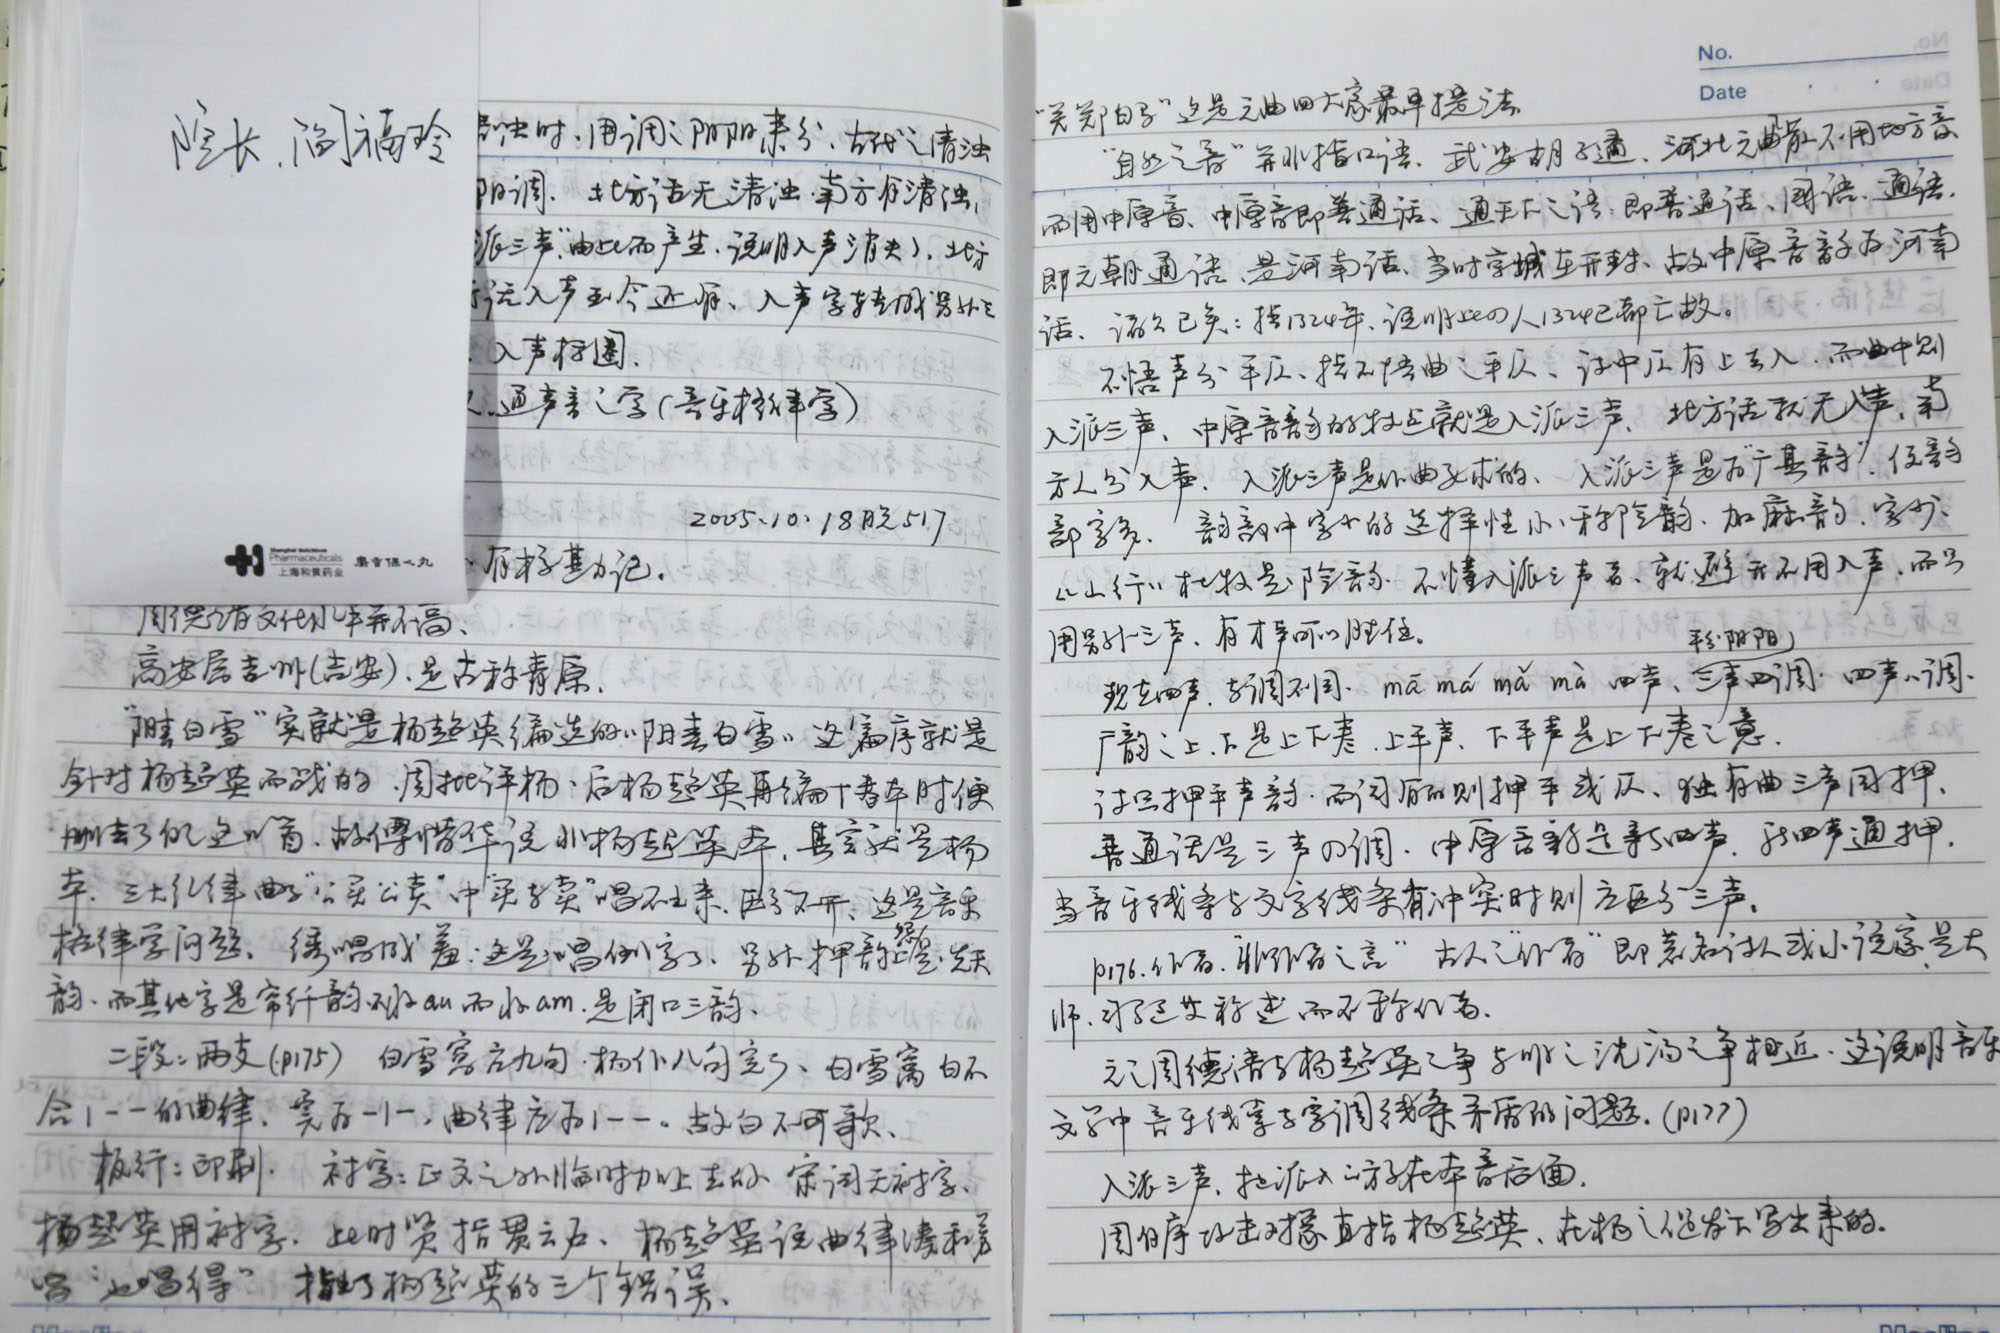 院长、阎福玲
时，用调之阴阳来分、古代之清浊
阳调．北方话无清浊．南方有清浊，
派三声”由此而产生．说明入声消失），北方
入声至今还有、入声字转成另外三
、入声标圈．
通声音之字（音乐格律字）
2005.10.18晚517
Shanghai Hutchison
Pharmaceuticals
上海和黄药业
麝香保心丸
．有校勘记．
周德清文化水平并不高、
高安属吉州（吉安）．是古称青原．
“阳春白雪”实就是杨朝英编选的《阳春白雪》这篇序就是
针对杨朝英而战的．周批评杨；后杨朝英再编十卷本时便
删去了的这八首．故傅惜华说非杨朝英本．其实就是杨
本．三大纪律曲子“公买公卖”中“买与卖”唱不出来，区分不开、这是音乐
格律学问题．绣唱成羞：这是唱倒字了、另外押韵 是先天
韵．而其他字是帘纤韵不收an而收am．是闭口三韵、
二段：两支（p175） 白雪窝应九句．杨作八句完了、白雪窝白不
合 | - - 的曲律．实为 - | - ，曲律应为 | - - 。故白不可歌、
板行：印刷． 衬字：正文之外临时加上去的 宋词无衬字、
杨朝英用衬字． 此时贤指贯云石、 杨朝英说曲律
唱“也唱得” 指出了杨朝英的三个错误．
No.
Date
“关郑白马”这是元曲四大家最早提法
“自然之音”并非指口语．武安胡子通．河北元曲 不用地方音
而用中原音、中原音即普通话、通天下之语：即普通话、国语、通语．
即元朝通语．是河南话、当时京城在开封．故中原音韵为河南
话． 诸公已矣：指1324年．说明此四人1324已都亡故。
不悟声分平仄、指不悟曲之平仄、诗中仄有上去入．而曲中则
入派三声． 中原音韵的特点就是入派三声． 北方话就无入声．南
方人分入声． 入派三声是作曲要求的． 入派三声是为“广其韵”．使韵
部字多． 韵部中字少的选择性小．称险韵．加麻韵．字少．
《山行》杜牧是险韵．不懂入派三声者、就避开不用入声．而只
用另外三声．有才华可以胜任。
平分阴阳
现在四声与调不同． mā má mǎ mà 四声、三声四调．四声八调．
广韵之上．下是上下卷．上平声、下平声是上下卷之意．
诗只押平声韵．而词有的则押平或仄、独有曲三声同押．
普通话是三声四调． 中原音韵是新四声． 新四声通押．
当音乐线条与文字线条有冲突时则应区分三声．
p176．作者．非作者之言” 古人之“作者”即著名诗人或小说家．是大
师．对了这些称述而不称作者．
元之周德清与杨朝英之争与明之沈汤之争相近．这说明音乐
文学中音乐线条与字调线条矛盾的问题．（p177）
入派三声．把派入的字在本音后面．
周自序攻击对象直指杨朝英、在杨之促发下写出来的．